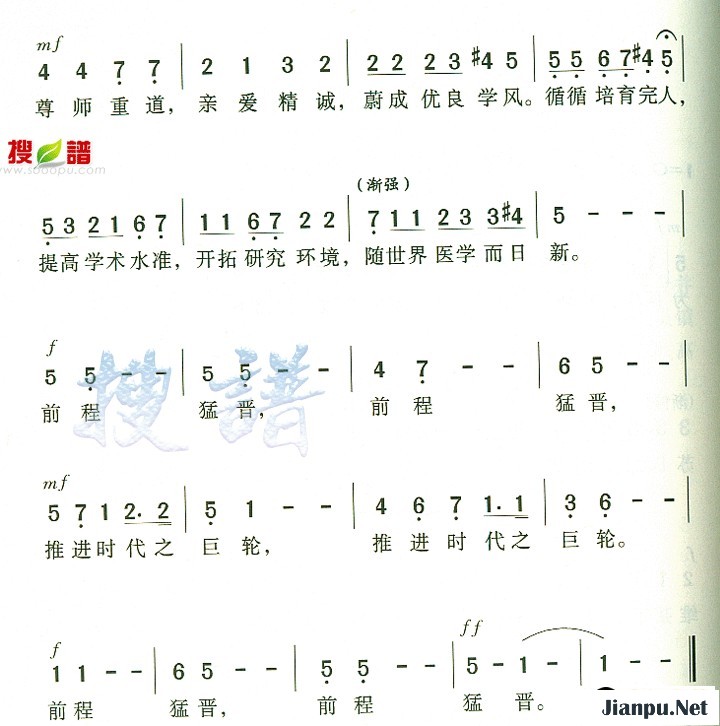 mf
4 4 7 7 | 2 1 3 2 | 2 2 2 3 #4 5 | 5 5 6 7 #4 5 |
尊 师 重 道, 亲 爱 精 诚, 蔚 成 优 良 学 风。循 循 培 育 完 人,
搜 谱
www.sooopu.com
(渐强)
5 3 2 1 6 7 | 1 1 6 7 2 2 | 7 1 1 2 3 3 #4 | 5 - - - |
提 高 学 术 水 准, 开 拓 研 究 环 境, 随 世 界 医 学 而 日 新。
f
5 5 - - | 5 5 - - | 4 7 - - | 6 5 - - |
前 程 猛 晋, 前 程 猛 晋,
搜 谱
mf
5 7 1 2. 2 | 5 1 - - | 4 6 7 1. 1 | 3 6 - - |
推 进 时 代 之 巨 轮, 推 进 时 代 之 巨 轮。
f ff
1 1 - - | 6 5 - - | 5 5 - - | 5 - 1 - | 1 - - ‖
前 程 猛 晋, 前 程 猛 晋。
Jianpu.Net